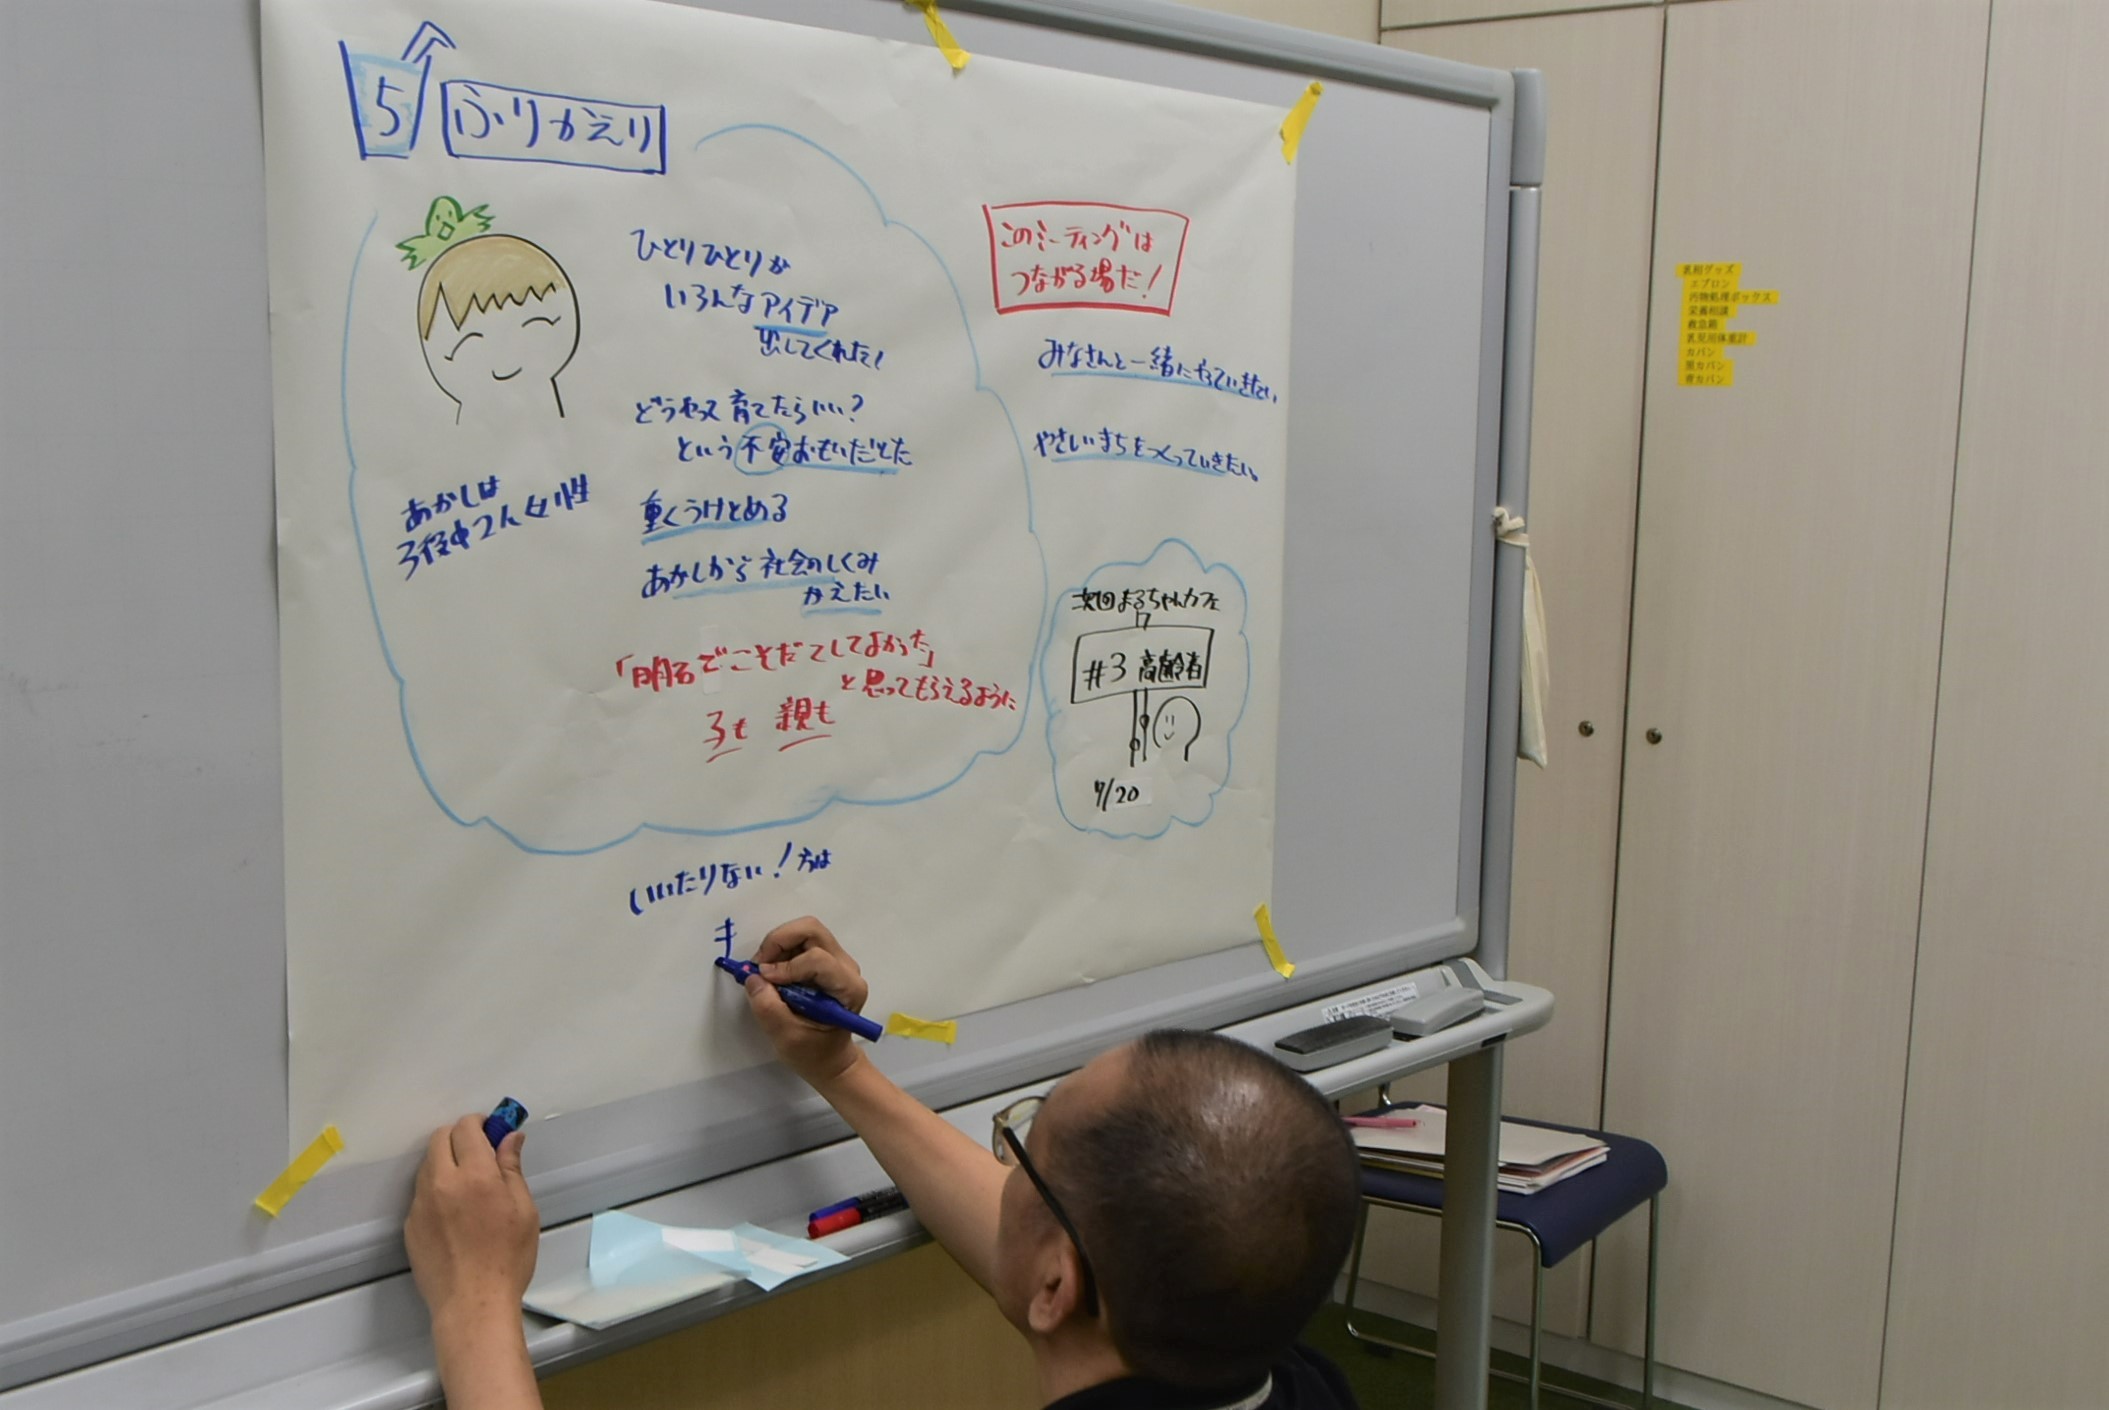 5 ふりかえり
ひとりひとりが
いろんなアイデア
出してくれた!
どうやって育てたらいい?
という不安おもいだした
重くうけとめる
あかしから社会のしくみ
かえたい
「明石でこそだてしてよかった」
と思ってもらえるように
子も 親も
あかしは
2人女性
このミーティングは
つながる場だ!
みなさんと一緒にやっていきたい。
やさしいまちをつくっていきたい。
次回まるちゃんカフェ
#3 高齢者
7/20
いいたりない!方は
キ
乳相グッズ
エプロン
汚物処理ボックス
栄養相談
救急箱
乳児用体重計
カバン
黒カバン
青カバン